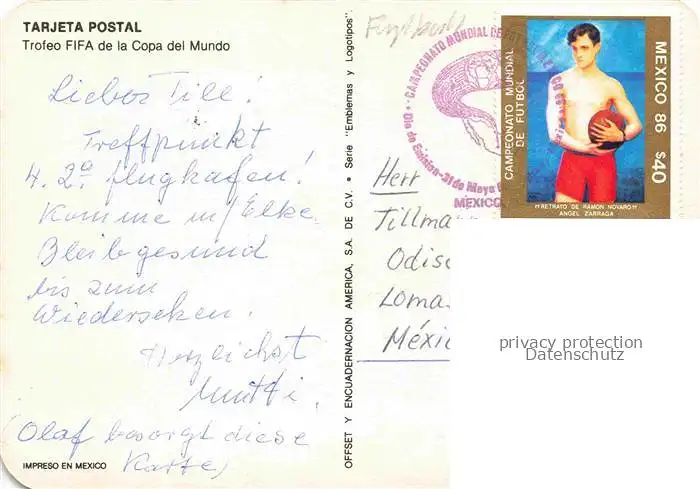 TARJETA POSTAL
Trofeo FIFA de la Copa del Mundo
Lieber Till!
Treffpunkt
4. 2a flughafen!
Komme m/Elke.
Bleib gesund
bis zum
Wiedersehen.
Herzlichst
Mutti.
(Olaf besorgt diese
Karte)
IMPRESO EN MEXICO
OFFSET Y ENCUADERNACION AMERICA, S.A. DE C.V. • Serie "Emblemas y Logotipos".
CAMPEONATO MUNDIAL DE
Dia de Emision-31 de Mayo
MEXICO
CAMPEONATO MUNDIAL
DE FUTBOL
MEXICO 86 $40
"RETRATO DE RAMON NOVARO"
ANGEL ZARRAGA
Herr
Tillma
Odis
Lomas
Méxic
privacy protection
Datenschutz